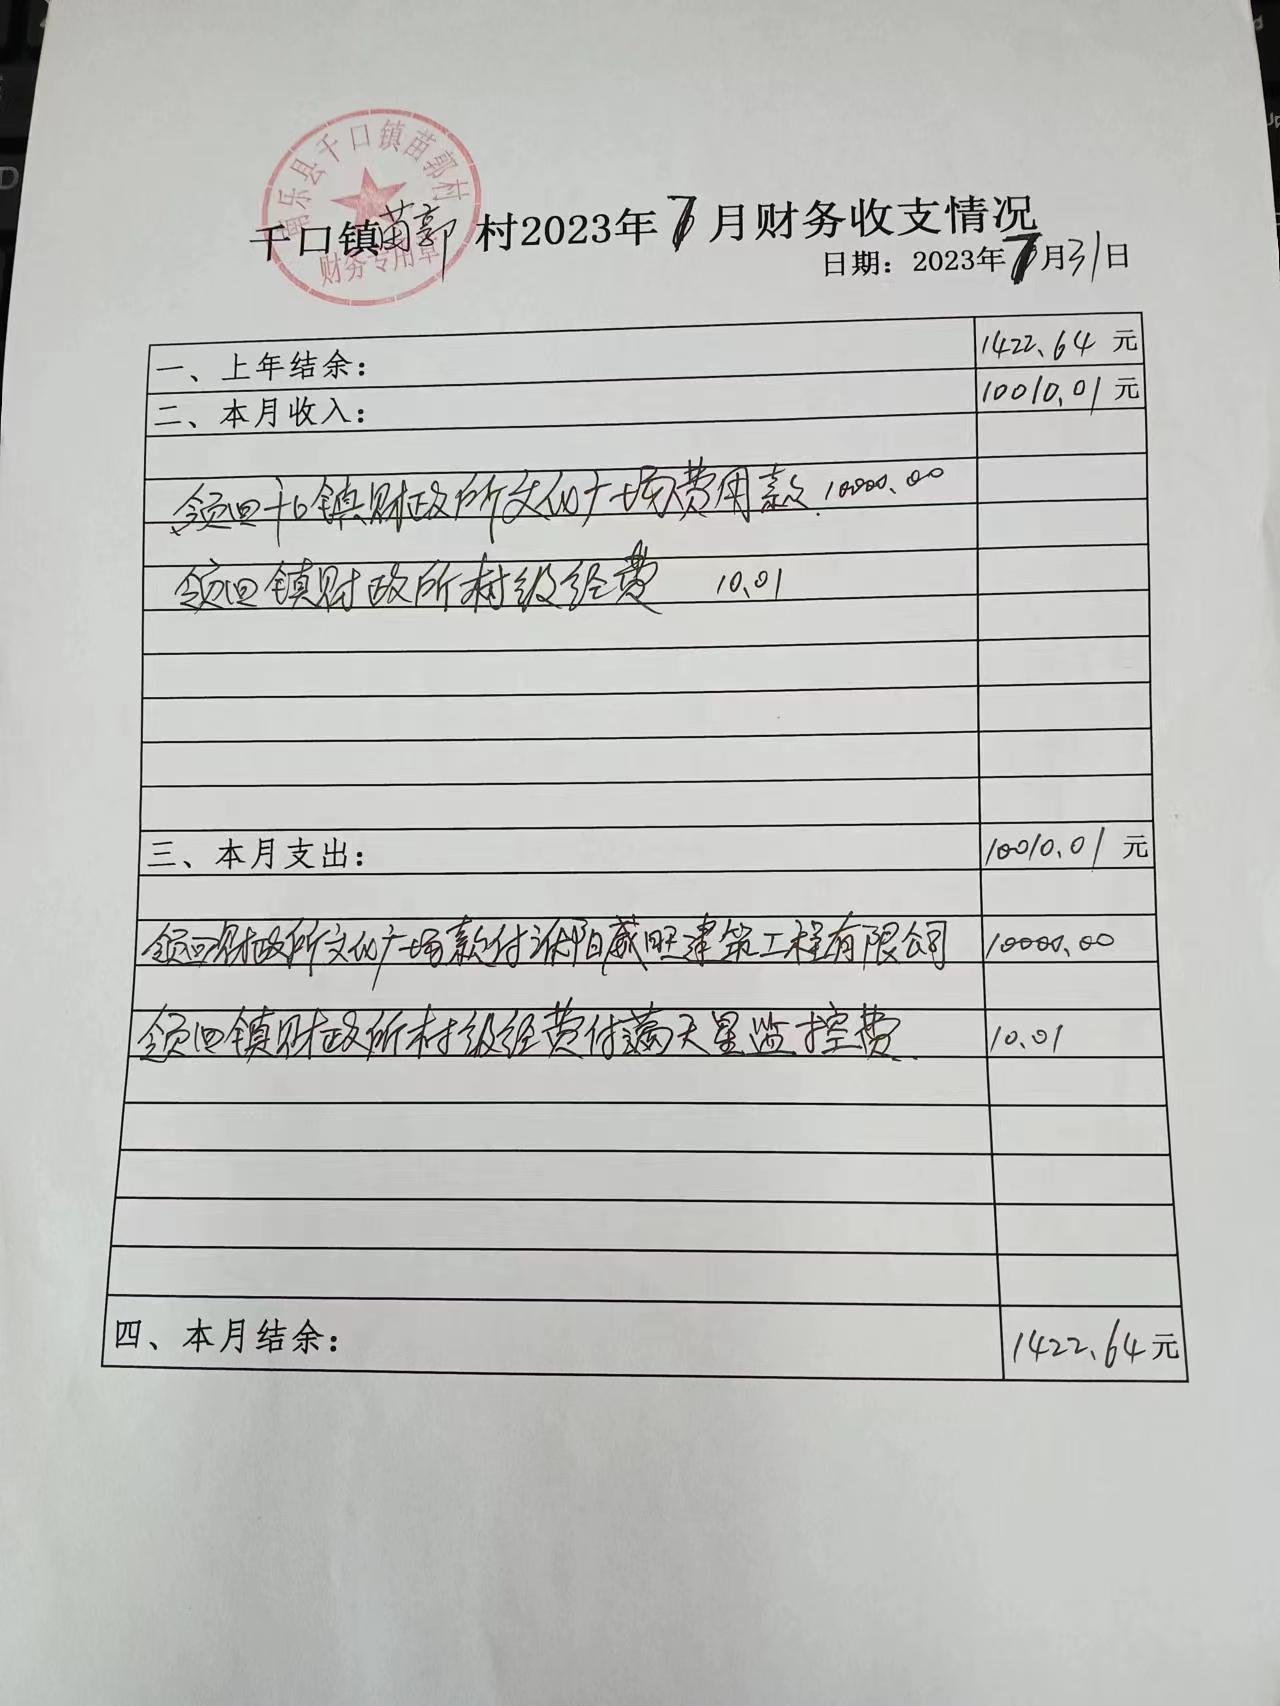 南乐县千口镇苗郭村
财务专用章
千口镇苗郭村2023年7月财务收支情况
日期：2023年7月31日
一、上年结余： 1422.64 元
二、本月收入： 10010.01 元
领回千口镇财政所文化广场费用款 10000.00
领回镇财政所村级经费 10.01
三、本月支出： 10010.01 元
领回财政所文化广场款付濮阳威旺建筑工程有限公司 10000.00
领回镇财政所村级经费付满天星监控费 10.01
四、本月结余： 1422.64元